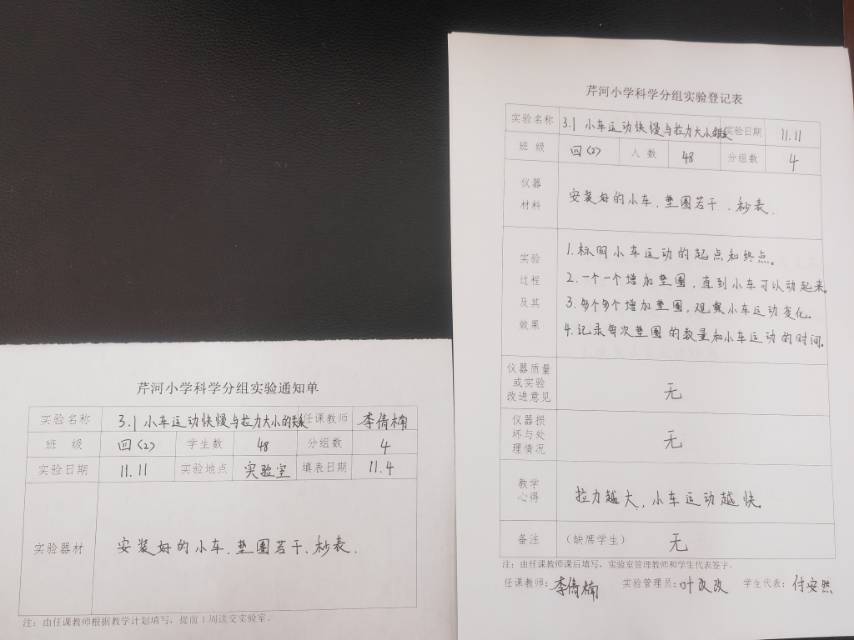 芹河小学科学分组实验通知单
实验名称 3.1 小车运动快慢与拉力大小的关系 任课教师 李倩楠
班 级 四(2) 学生数 48 分组数 4
实验日期 11.11 实验地点 实验室 填表日期 11.4
实验器材 安装好的小车、垫圈若干、秒表.
注:由任课教师根据教学计划填写,提前1周送交实验室.
芹河小学科学分组实验登记表
实验名称 3.1 小车运动快慢与拉力大小的关系 实验日期 11.11
班 级 四(2) 人 数 48 分组数 4
仪器
材料
安装好的小车、垫圈若干、秒表.
实验
过程
及其
效果
1.标明小车运动的起点和终点。
2.一个一个增加垫圈,直到小车可以动起来。
3.多个多个增加垫圈,观察小车运动变化.
4.记录每次垫圈的数量和小车运动的时间.
仪器质量
或实验
改进意见
无
仪器损
坏与处
理情况
无
教学
心得
拉力越大,小车运动越快.
备注 (缺席学生) 无
注:由任课教师课后填写,实验室管理教师和学生代表签字.
任课教师:李倩楠 实验管理员:叶改改 学生代表:付安然